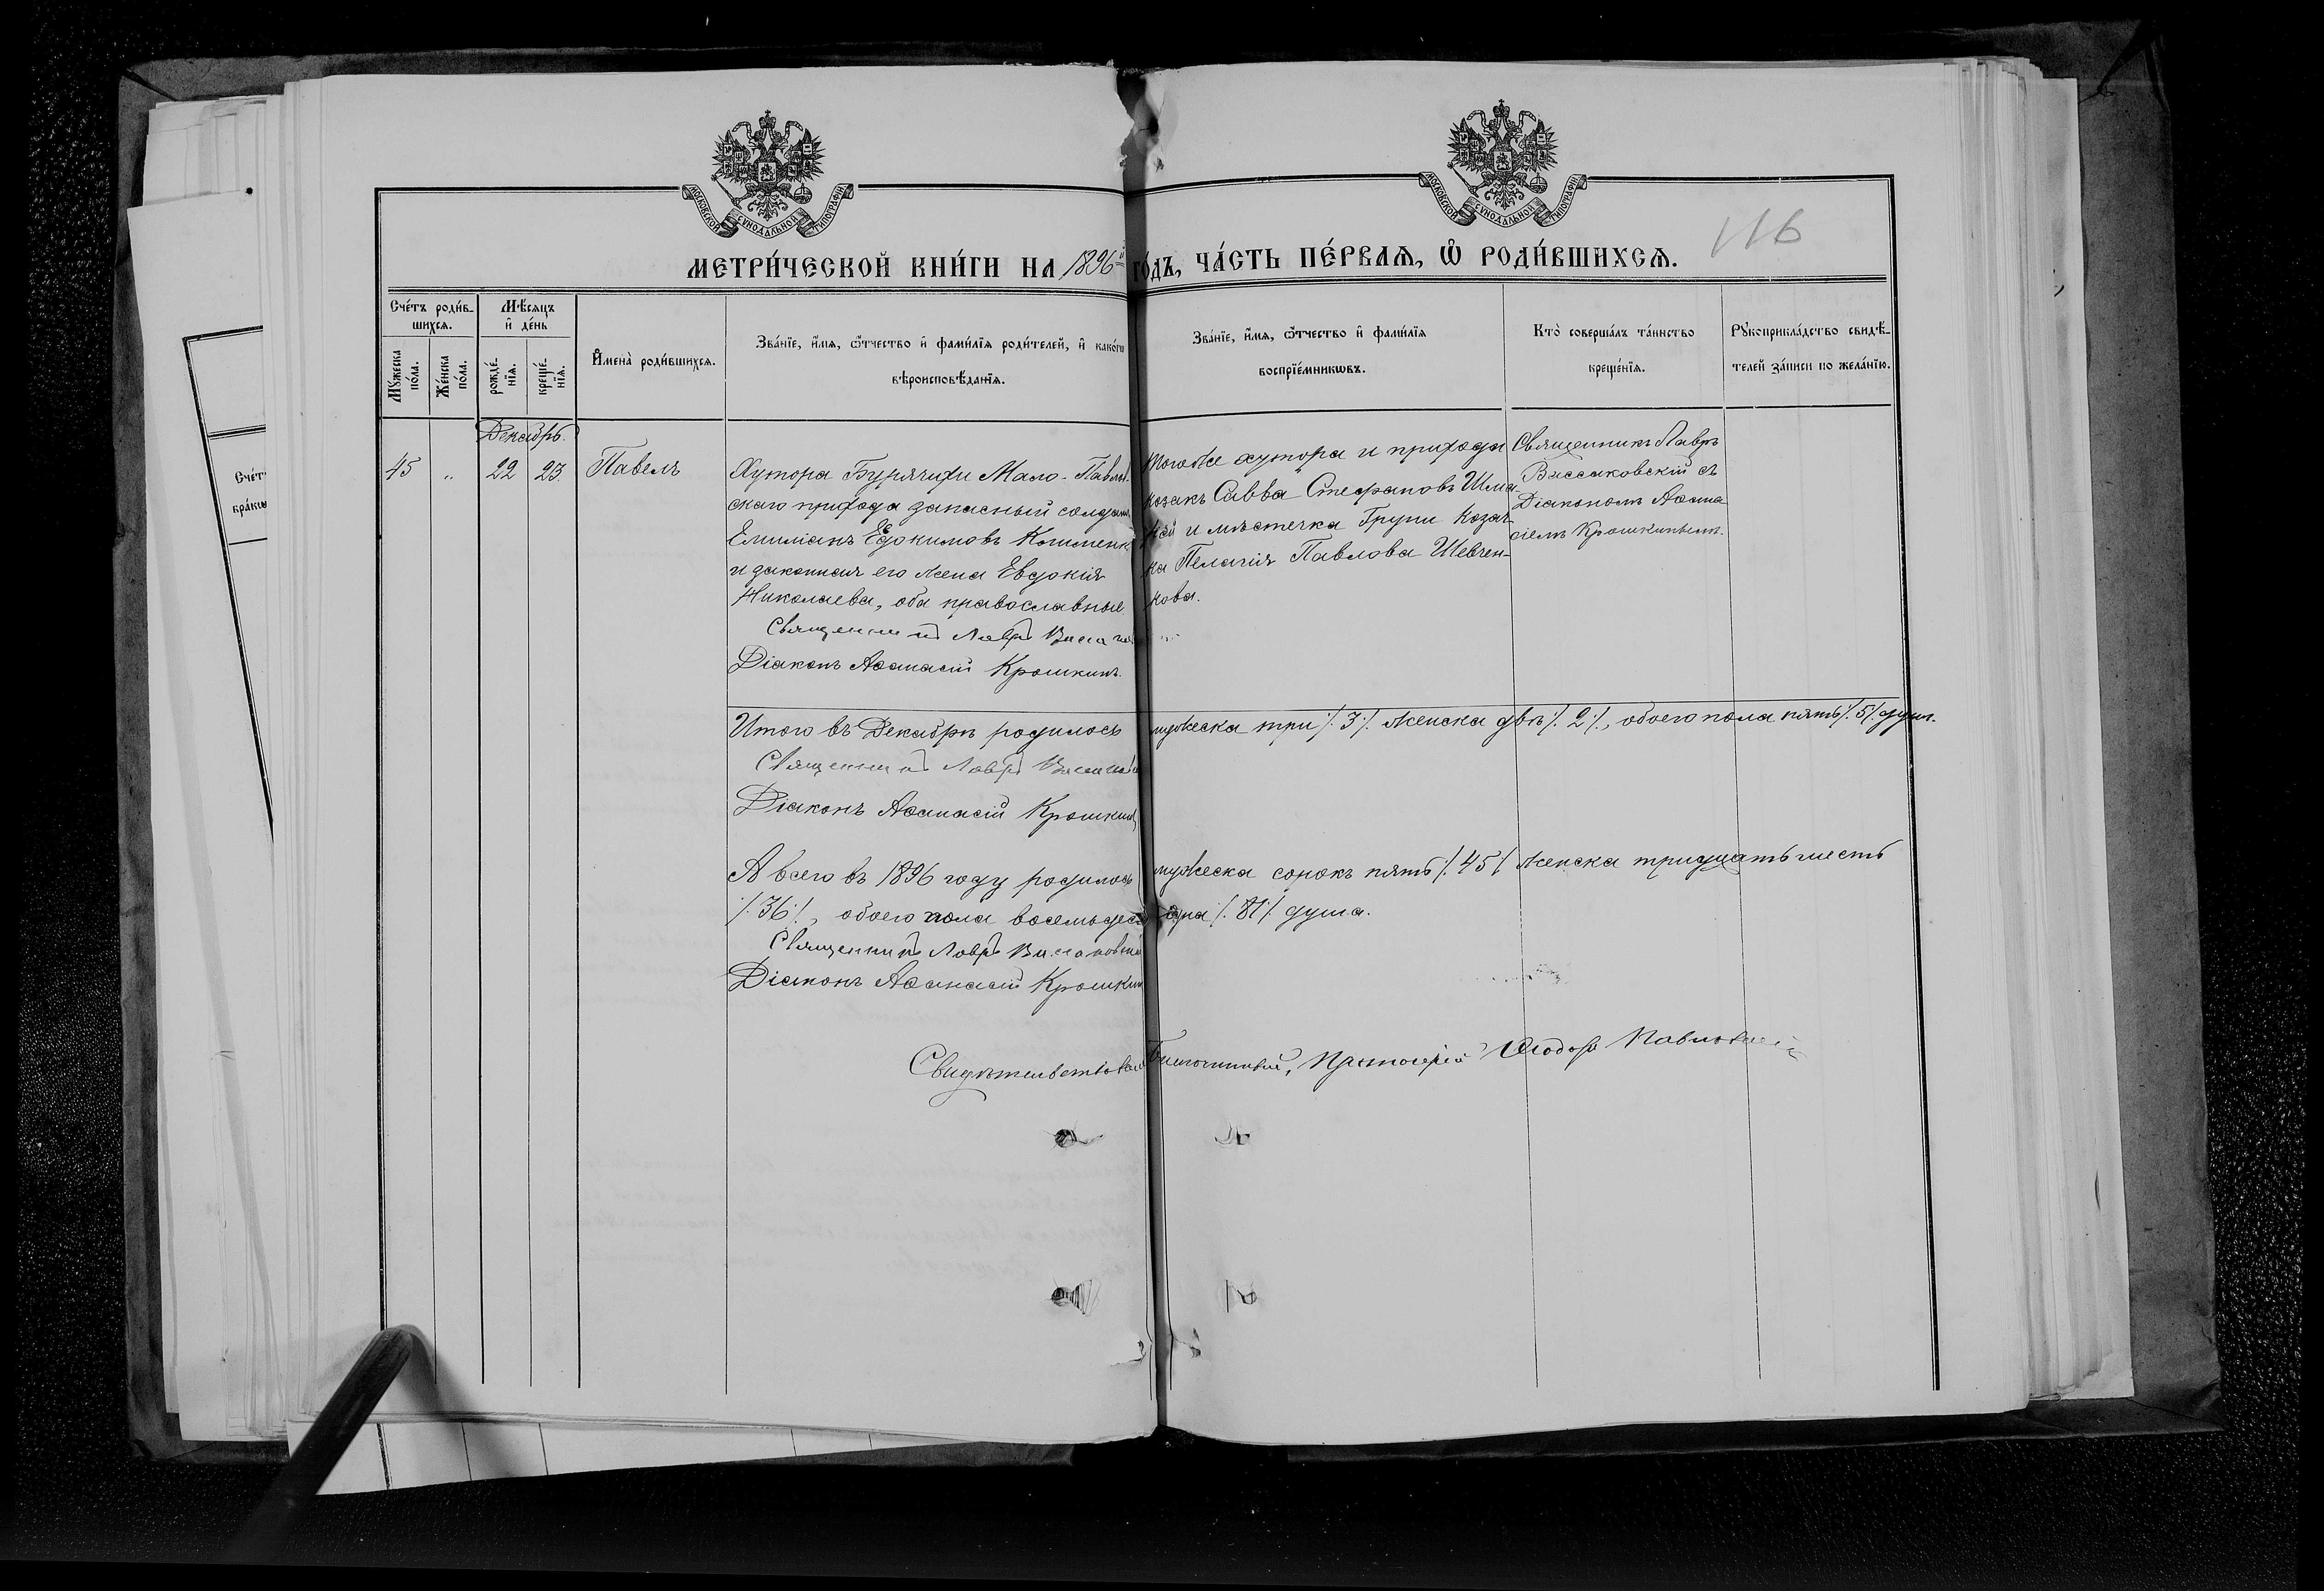 МОСКОВСКОЙ СУНОДАЛЬНОЙ ТИПОГРАФІИ
МОСКОВСКОЙ СУНОДАЛЬНОЙ ТИПОГРАФІИ
116
МЕТРИ́ЧЕСКОЙ КНИ́ГИ НА 1896й ГО́ДЪ, ЧА́СТЬ ПЕ́РВАѦ, Ѡ РОДИ́ВШИХСѦ.
Сче́тъ роди́в-
шихсѧ.
Мѣ́сѧцъ
и҆ де́нь
Мꙋ́жеска
по́ла.
Же́нска
по́ла.
рожде́-
нїѧ.
креще́-
нїѧ.
И҆мена̀ роди́вшихсѧ.
Зва́нїе, и҆́мѧ, ѻ҆́тчество и҆ фами́лїѧ роди́телей, и҆ како́гѡ
вѣроисповѣ́данїѧ.
Зва́нїе, и҆́мѧ, ѻ҆́тчество и҆ фами́лїѧ
воспрїе́мникѡвъ.
Кто̀ соверша́лъ та́инство
креще́нїѧ.
Рꙋкоприкла́дство свидѣ́-
телей за́писи по жела́нїю.
Декабрь.
45 „ 22 23. Павелъ
Хутора Бурячихи Мало-Павлов-
скаго прихода запасный солдатъ
Емиліанъ Евдокимовъ Клименко
и законная его жена Евдокія
Николаева, оба православные.
Священникъ Лавръ
Діаконъ Аѳанасій Крошкинъ.
Тогоже хутора и прихода
козакъ Савва Стефановъ
и мѣстечка Груни козач-
ка Пелагія Павлова Шевчен-
кова.
Священникъ Лавръ
Виссаковскій съ
Діакономъ Аѳана
сіемъ Крошкинымъ.
Итого въ Декабрѣ родилось мужеска три /. 3 /. женска двѣ /. 2 /., обоего пола пять /. 5 /. душъ.
Священникъ Лавръ
Діаконъ Аѳанасій Крошкинъ
А всего въ 1896 году родилось мужеска сорокъ пять /. 45 /. женска тридцать шесть
/. 36 /., обоего пола восемьдесятъ одна /. 81 /. душа.
Священникъ Лавръ
Діаконъ Аѳанасій Крошкинъ
Свидѣтельствовалъ Благочинный, Протоіерей Ѳеодоръ
Сче́т
бра́кѡ